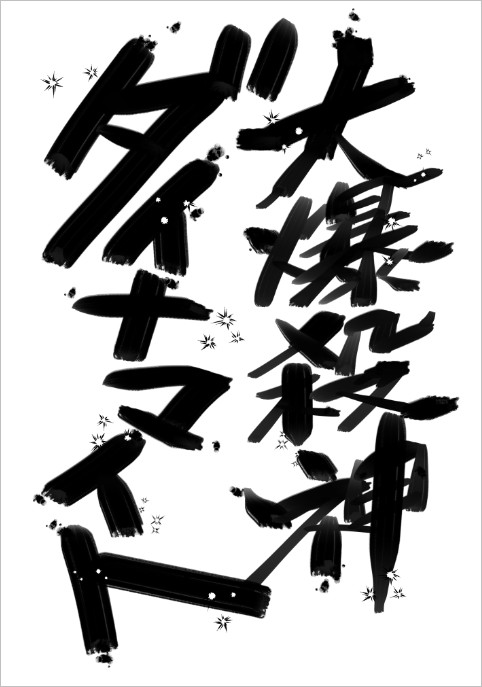 大爆殺神
ダイナマイト